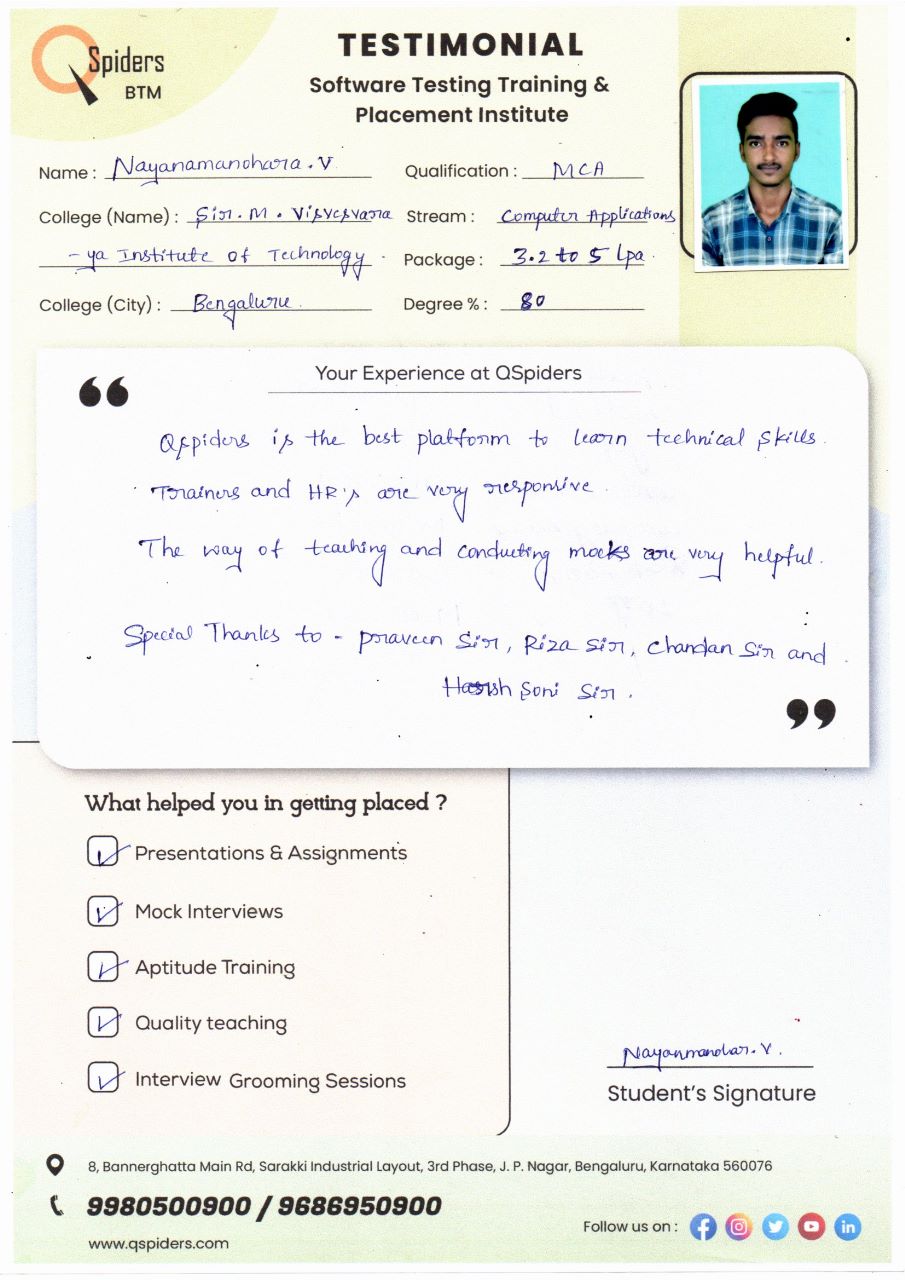 QSpiders
BTM
TESTIMONIAL
Software Testing Training &
Placement Institute
Name : Nayanamanohara . V
Qualification : MCA
College (Name) : Sir. M. Visvesvara
Stream : Computer Applications
- ya Institute of Technology
Package : 3.2 to 5 lpa
College (City) : Bengaluru
Degree % : 80
Your Experience at QSpiders
Qspiders is the best platform to learn technical skills.
Trainers and HR's are very responsive.
The way of teaching and conducting mocks are very helpful.
Special Thanks to - praveen Sir, Riza sir, Chandan Sir and
Harish Soni Sir.
What helped you in getting placed ?
Presentations & Assignments
Mock Interviews
Aptitude Training
Quality teaching
Interview Grooming Sessions
Nayanmanohar. V.
Student's Signature
8, Bannerghatta Main Rd, Sarakki Industrial Layout, 3rd Phase, J. P. Nagar, Bengaluru, Karnataka 560076
9980500900 / 9686950900
Follow us on :
www.qspiders.com